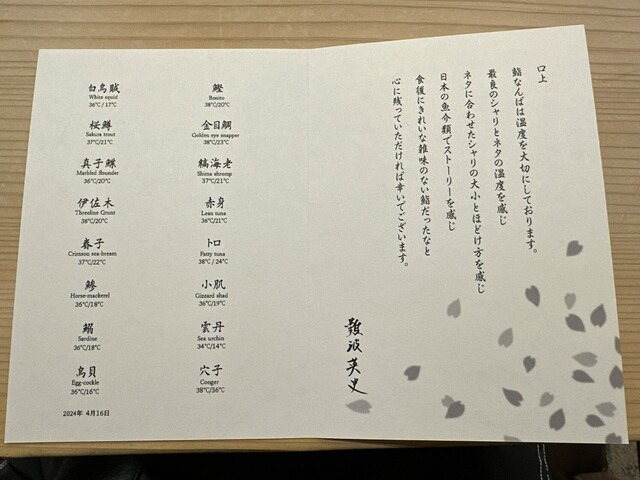 白烏賊
White squid
36℃/ 17℃
桜鱒
Sakura trout
37℃/21℃
真子鰈
Marbled flounder
36℃/20℃
伊佐木
Threeline Grunt
38℃/20℃
春子
Crimson sea-bream
37℃/22℃
鯵
Horse-mackerel
36℃/18℃
鰯
Sardine
36℃/18℃
鳥貝
Egg-cockle
36℃/16℃
2024年 4月16日
鰹
Bonito
38℃/20℃
金目鯛
Golden eye snapper
38℃/23℃
縞海老
Shima shromp
37℃/21℃
赤身
Lean tuna
36℃/21℃
トロ
Fatty tuna
38℃ / 24℃
小肌
Gizzard shad
36℃/19℃
雲丹
Sea urchin
34℃/14℃
穴子
Conger
38℃/36℃
口上
鮨なんばは温度を大切にしております。
最良のシャリとネタの温度を感じ
ネタに合わせたシャリの大小とほどけ方を感じ
日本の魚介類でストーリーを感じ
食後にきれいな雑味のない鮨だったなと
心に残っていただければ幸いでございます。
難波英史